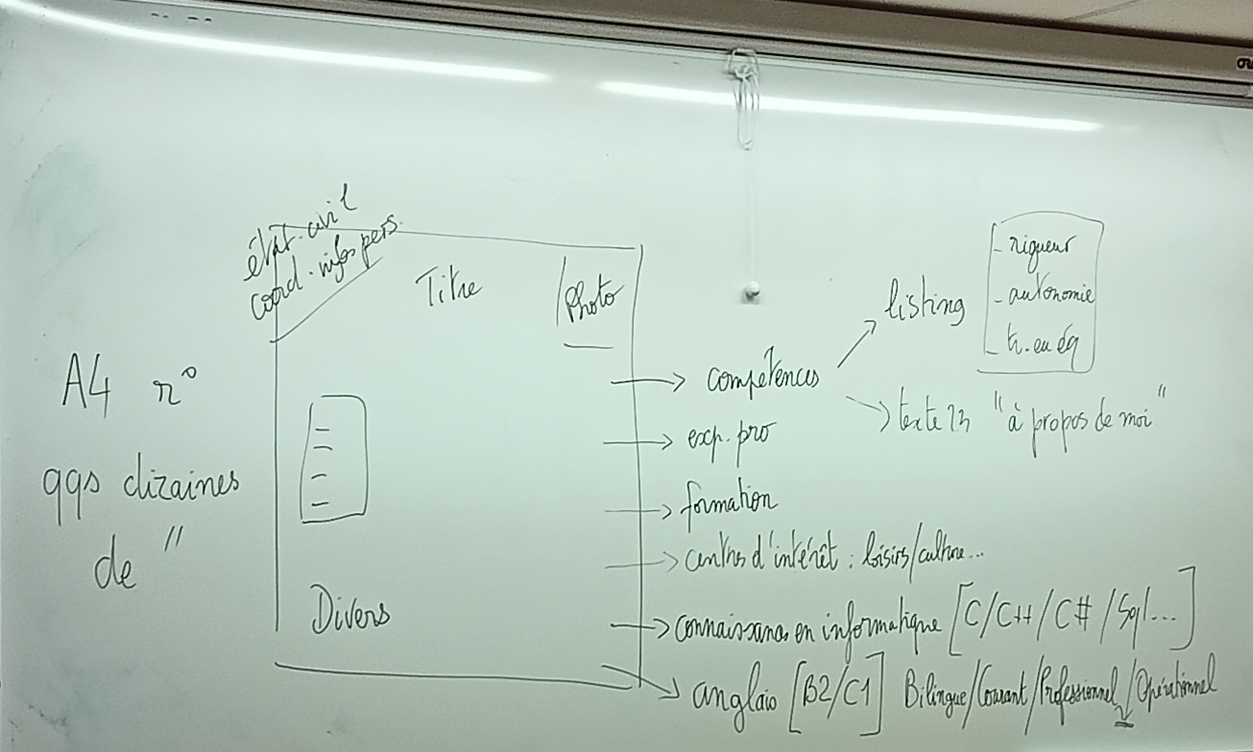 état-civil
coord. infos pers.
Titre
Photo
A4 r°
qqs dizaines
de "
Divers
→ compétences
→ listing
- rigueur
- autonomie
- tr. en éq
→ texte "à propos de moi"
→ exp. pro
→ formation
→ centres d'intérêt : loisirs/culture...
→ connaissances en informatique [C/C++/C#/Sql...]
→ anglais [B2/C1] Bilingue/Courant/Professionnel/Opérationnel